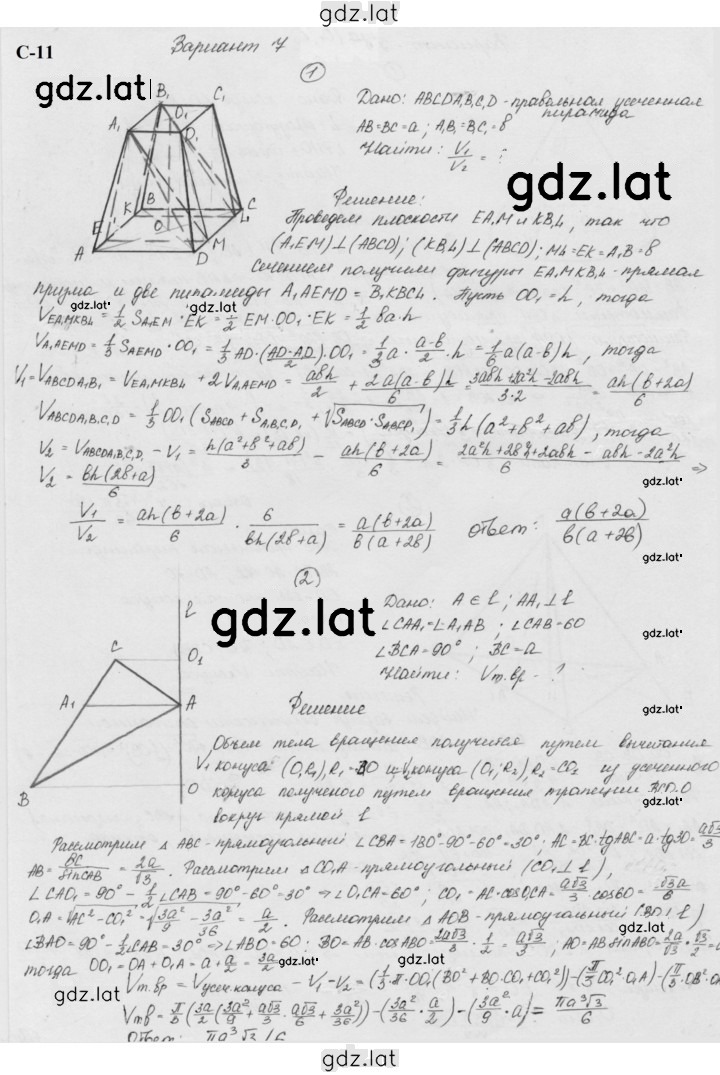 gdz.lat
С-11
Вариант 7
gdz.lat
1
B₁ C₁ O₁ A₁ D₁
K B C L E O A D M
Дано: ABCDA₁B₁C₁D - правильная усеченная пирамида
AB=BC=a; A₁B₁=B₁C₁=в
Найти: V₁/V₂ = ?
gdz.lat
Решение:
Проведем плоскости EA₁M и KB₁L, так что
(A₁EM)⊥(ABCD); (KB₁L)⊥(ABCD); ML=EK=A₁B=в
Сечением получили фигуры EA₁MKB₁L-прямая
призма и две пирамиды A₁AEMD = B₁KBCL. Пусть OO₁=h, тогда
gdz.lat
gdz.lat
V EA₁MKB₁L = 1/2 S A₁EM · EK = 1/2 EM·OO₁·EK = 1/2 вa·h
V A₁AEMD = 1/3 S AEMD · OO₁ = 1/3 AD·(AD-A₁D₁/2)·OO₁ = 1/3 a · a-в/2 · h = 1/6 a(a-в)h, тогда
V₁=V ABCDA₁B₁ = V EA₁MKB₁L + 2V A₁AEMD = aвh/2 + 2a(a-в)h/6 = 3aвh+2a²h-2aвh/3·2 = ah(в+2a)/6
V ABCDA₁B₁C₁D = 1/3 OO₁(S ABCD + S A₁B₁C₁D₁ + √S ABCD·S A₁B₁C₁D₁) = 1/3 h(a²+в²+aв), тогда
V₂ = V ABCDA₁B₁C₁D₁ - V₁ = h(a²+в²+aв)/3 - ah(в+2a)/6 = 2a²h+2в²h+2aвh-aвh-2a²h/6 ⇒
V₂ = вh(2в+a)/6
gdz.lat
V₁/V₂ = ah(в+2a)/6 · 6/вh(2в+a) = a(в+2a)/в(a+2в) ответ: a(в+2a)/в(a+2в)
gdz.lat
2
gdz.lat
l O₁ C A₁ A B O
Дано: A∈l; AA₁⊥l
∠CAA₁=∠A₁AB; ∠CAB=60
∠BCA=90°; BC=a
Найти: Vт.вр - ?
gdz.lat
gdz.lat
Решение
Объем тела вращения получится путем вычитания
V₁ конуса (O,R₁), R₁=BO и V₂ конуса (O₁;R₂), R₂=CO₁ из усеченного
конуса полученого путем вращения трапеции BCO₁O
вокруг прямой l
Рассмотрим △ABC-прямоугольный ∠CBA=180°-90°-60°=30°; AC=BC·tgABC=a·tg30=a√3/3
AB=BC/sinCAB = 2a/√3. Рассмотрим △CO₁A-прямоугольный (CO₁⊥l),
∠CAO₁=90°-1/2∠CAB=90°-60°=30°⇒∠O₁CA=60°; CO₁=AC·cosO₁CA=a√3/3 cos60=√3a/6
O₁A=√AC²-CO₁²=√3a²/9-3a²/36=a/2. Рассмотрим △AOB-прямоугольный (BO⊥l)
∠BAO=90°-1/2∠CAB=30°⇒∠ABO=60; BO=AB·cosABO=2a√3/3·1/2=a√3/3; AO=AB sinABO=2a/√3·√3/2=
тогда OO₁=OA+O₁A=a+a/2=3a/2
gdz.lat
gdz.lat
Vт.вр=Vусеч.конуса-V₁-V₂=(1/3·π·OO₁(BO²+BO·CO₁+CO₁²))-(π/3 CO₁²·O₁A)-(π/3·OB²·OA
Vт.в=π/3(3a/2(3a²/9+a√3/3·a√3/6+3a²/36))-(3a²/36·a/2)-(3a²/9·a)=πa³√3/6
Ответ: πa³√3/6
gdz.lat